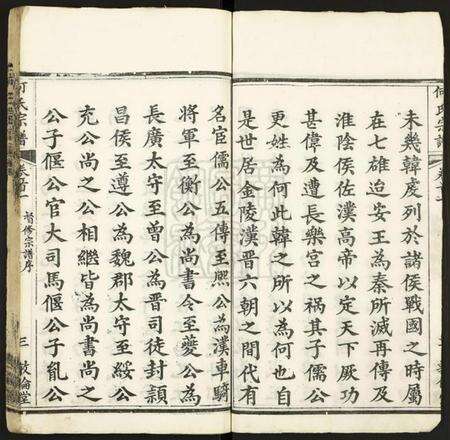 何氏宗譜
未幾韓虔列於諸侯戰國之時屬
在七雄迨安王為秦所滅再傳及
淮陰侯佐漢高帝以定天下厥功
甚偉及遭長樂宮之禍其子儒公
更姓為何此韓之所以為何也自
是世居金陵漢晉六朝之間代有
名宦儒公五傳至熙公為漢車騎
將軍至衡公為尚書令至夔公為
長廣太守至曾公為晉司徒封潁
昌侯至遵公為魏郡太守至綏公
充公尚之公相繼皆為尚書尚之
公子偃公官大司馬偃公子㲋公
何氏宗譜
卷首一
督修宗譜序
三
敦倫堂